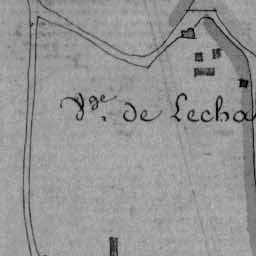 Vge. de Lecha